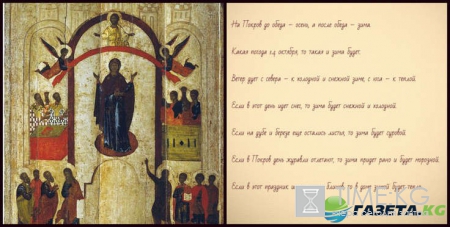 На Покров до обеда - осень, а после обеда - зима.
Какая погода 14 октября, то такая и зима будет.
Ветер дует с севера - к холодной и снежной зиме, с юга - к теплой.
Если в этот день идет снег, то зима будет снежной и холодной.
Если на дубе и березе еще остались листья, то зима будет суровой.
Если в Покров день журавли отлетают, то зима придет рано и будет морозной.
Если в этот праздник и то в доме зимой будет тепло.
TIME.KG
ГАЗЕТА.KG